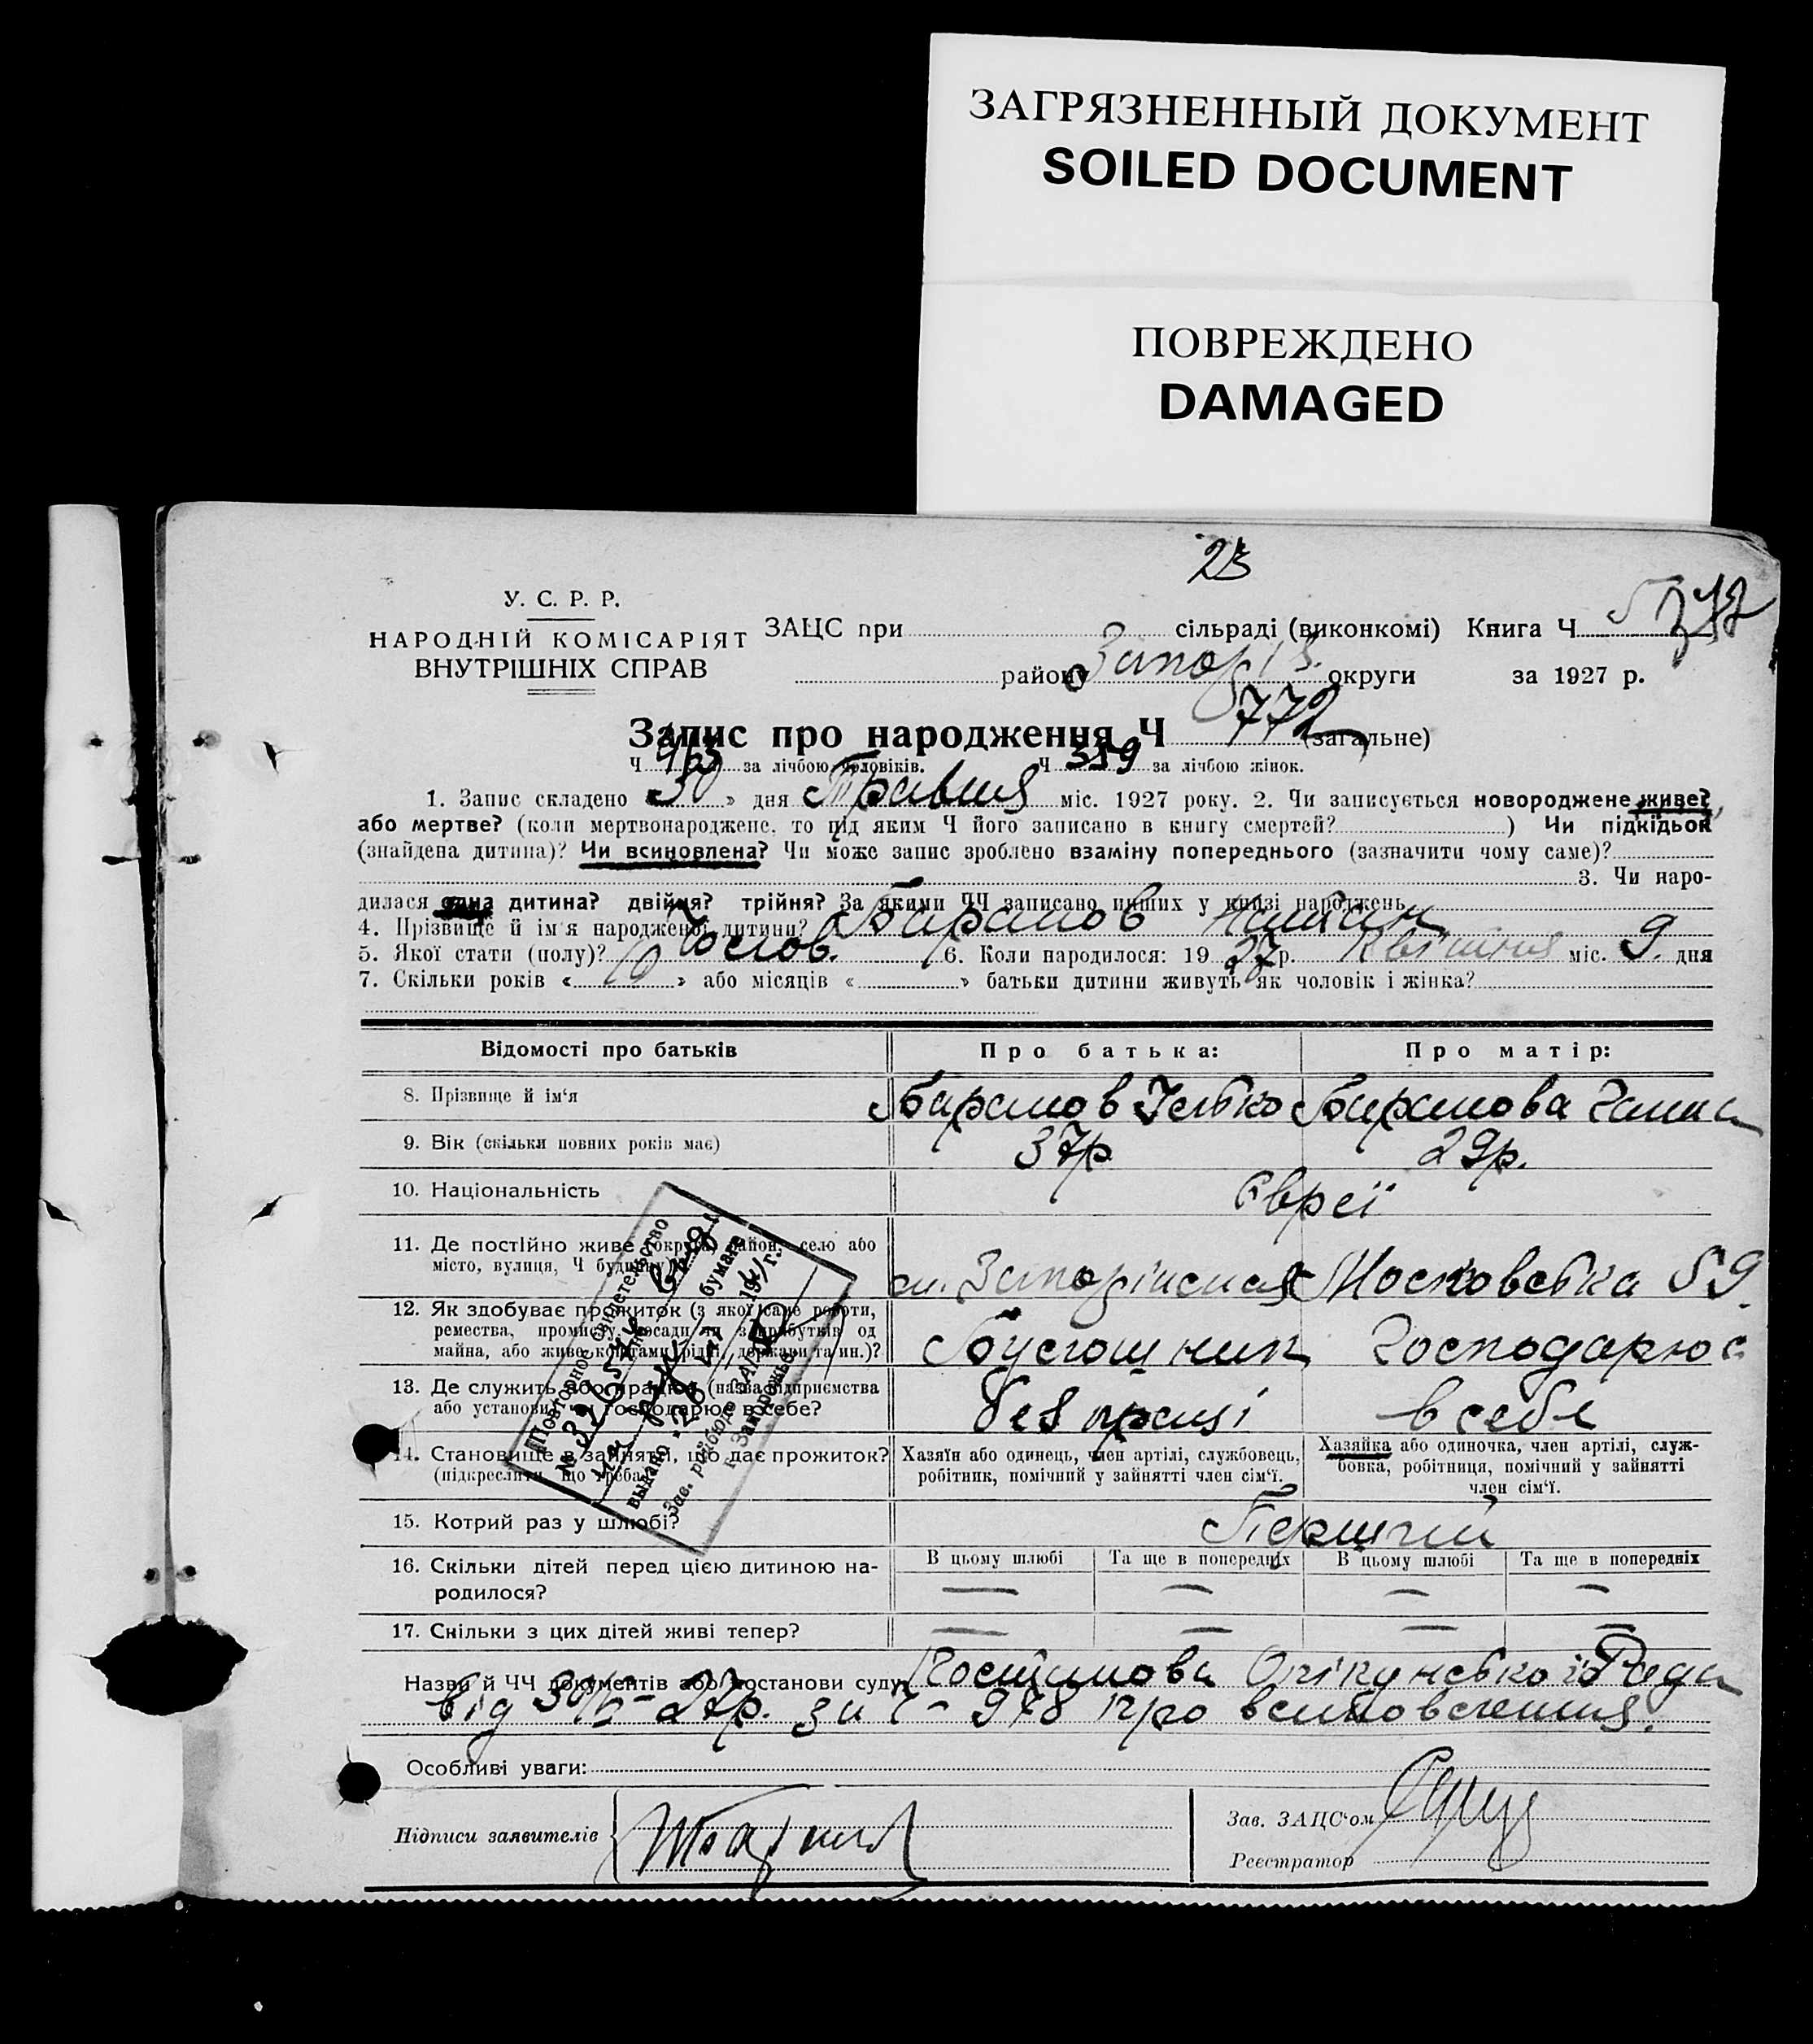 ЗАГРЯЗНЕННЫЙ ДОКУМЕНТ
SOILED DOCUMENT
ПОВРЕЖДЕНО
DAMAGED
23
У. С. Р. Р.
НАРОДНІЙ КОМІСАРІЯТ
ВНУТРІШНІХ СПРАВ
ЗАЦС при сільраді (виконкомі) Книга Ч
району округи за 1927 р.
Запис про народження Ч 772 (загальне)
Ч 413 за лічбою чоловіків. Ч 359 за лічбою жінок.
1. Запис складено « 30 » дня Травня міс. 1927 року. 2. Чи записується новороджене живе?
або мертве? (коли мертвонароджене, то під яким Ч його записано в книгу смертей? ) Чи підкідьок
(знайдена дитина)? Чи всиновлена? Чи може запис зроблено взаміну попереднього (зазначити чому саме)?
3. Чи наро-
дилася одна дитина? двійня? трійня? За якими ЧЧ записано инших у книзі народжень
4. Прізвище й ім'я народженої дитини? Баранов Натан
5. Якої стати (полу)? Чолов. 6. Коли народилося: 19 27 р. Квітня міс. 9. дня
7. Скільки років « 10 » або місяців « » батьки дитини живуть як чоловік і жінка?
Відомості про батьків Про батька: Про матір:
8. Прізвище й ім'я Баранов Баранова Ганна
9. Вік (скільки повних років має) 37р 29р.
10. Національність Євреї
11. Де постійно живе (округа, район, село або
місто, вулиця, Ч будинку) м. Запоріжжя Московська 59
12. Як здобуває прожиток (з якої саме роботи,
ремества, промислу, посади чи з прибутків од
майна, або живе коштами рідні, держави та ин.)? Господарює
13. Де служить або працює (назва підприємства
або установи) чи господарює в себе? без праці в себе
14. Становище в занятті, що дає прожиток?
(підкреслити, що треба)
Хазяїн або одинець, член артілі, службовець,
робітник, помічний у зайнятті член сім'ї.
Хазяйка або одиночка, член артілі, служ-
бовка, робітниця, помічний у зайнятті
член сім'ї.
15. Котрий раз у шлюбі? Перший
16. Скільки дітей перед цією дитиною на-
родилося?
В цьому шлюбі Та ще в попередніх В цьому шлюбі Та ще в попередніх
— — — —
17. Скільки з цих дітей живі тепер? — — — —
Назви й ЧЧ документів або постанови суду Постанова Опікунської Ради
від 30/V-27р. за Ч- 978 про всиновлення.
Особливі уваги:
Підписи заявителів
Зав. ЗАЦС'ом
Реєстратор
Повторное свидетельство
№
бумаге
выдано 194 г.
Зав. райбюро ЗАГС
г. Запорожье